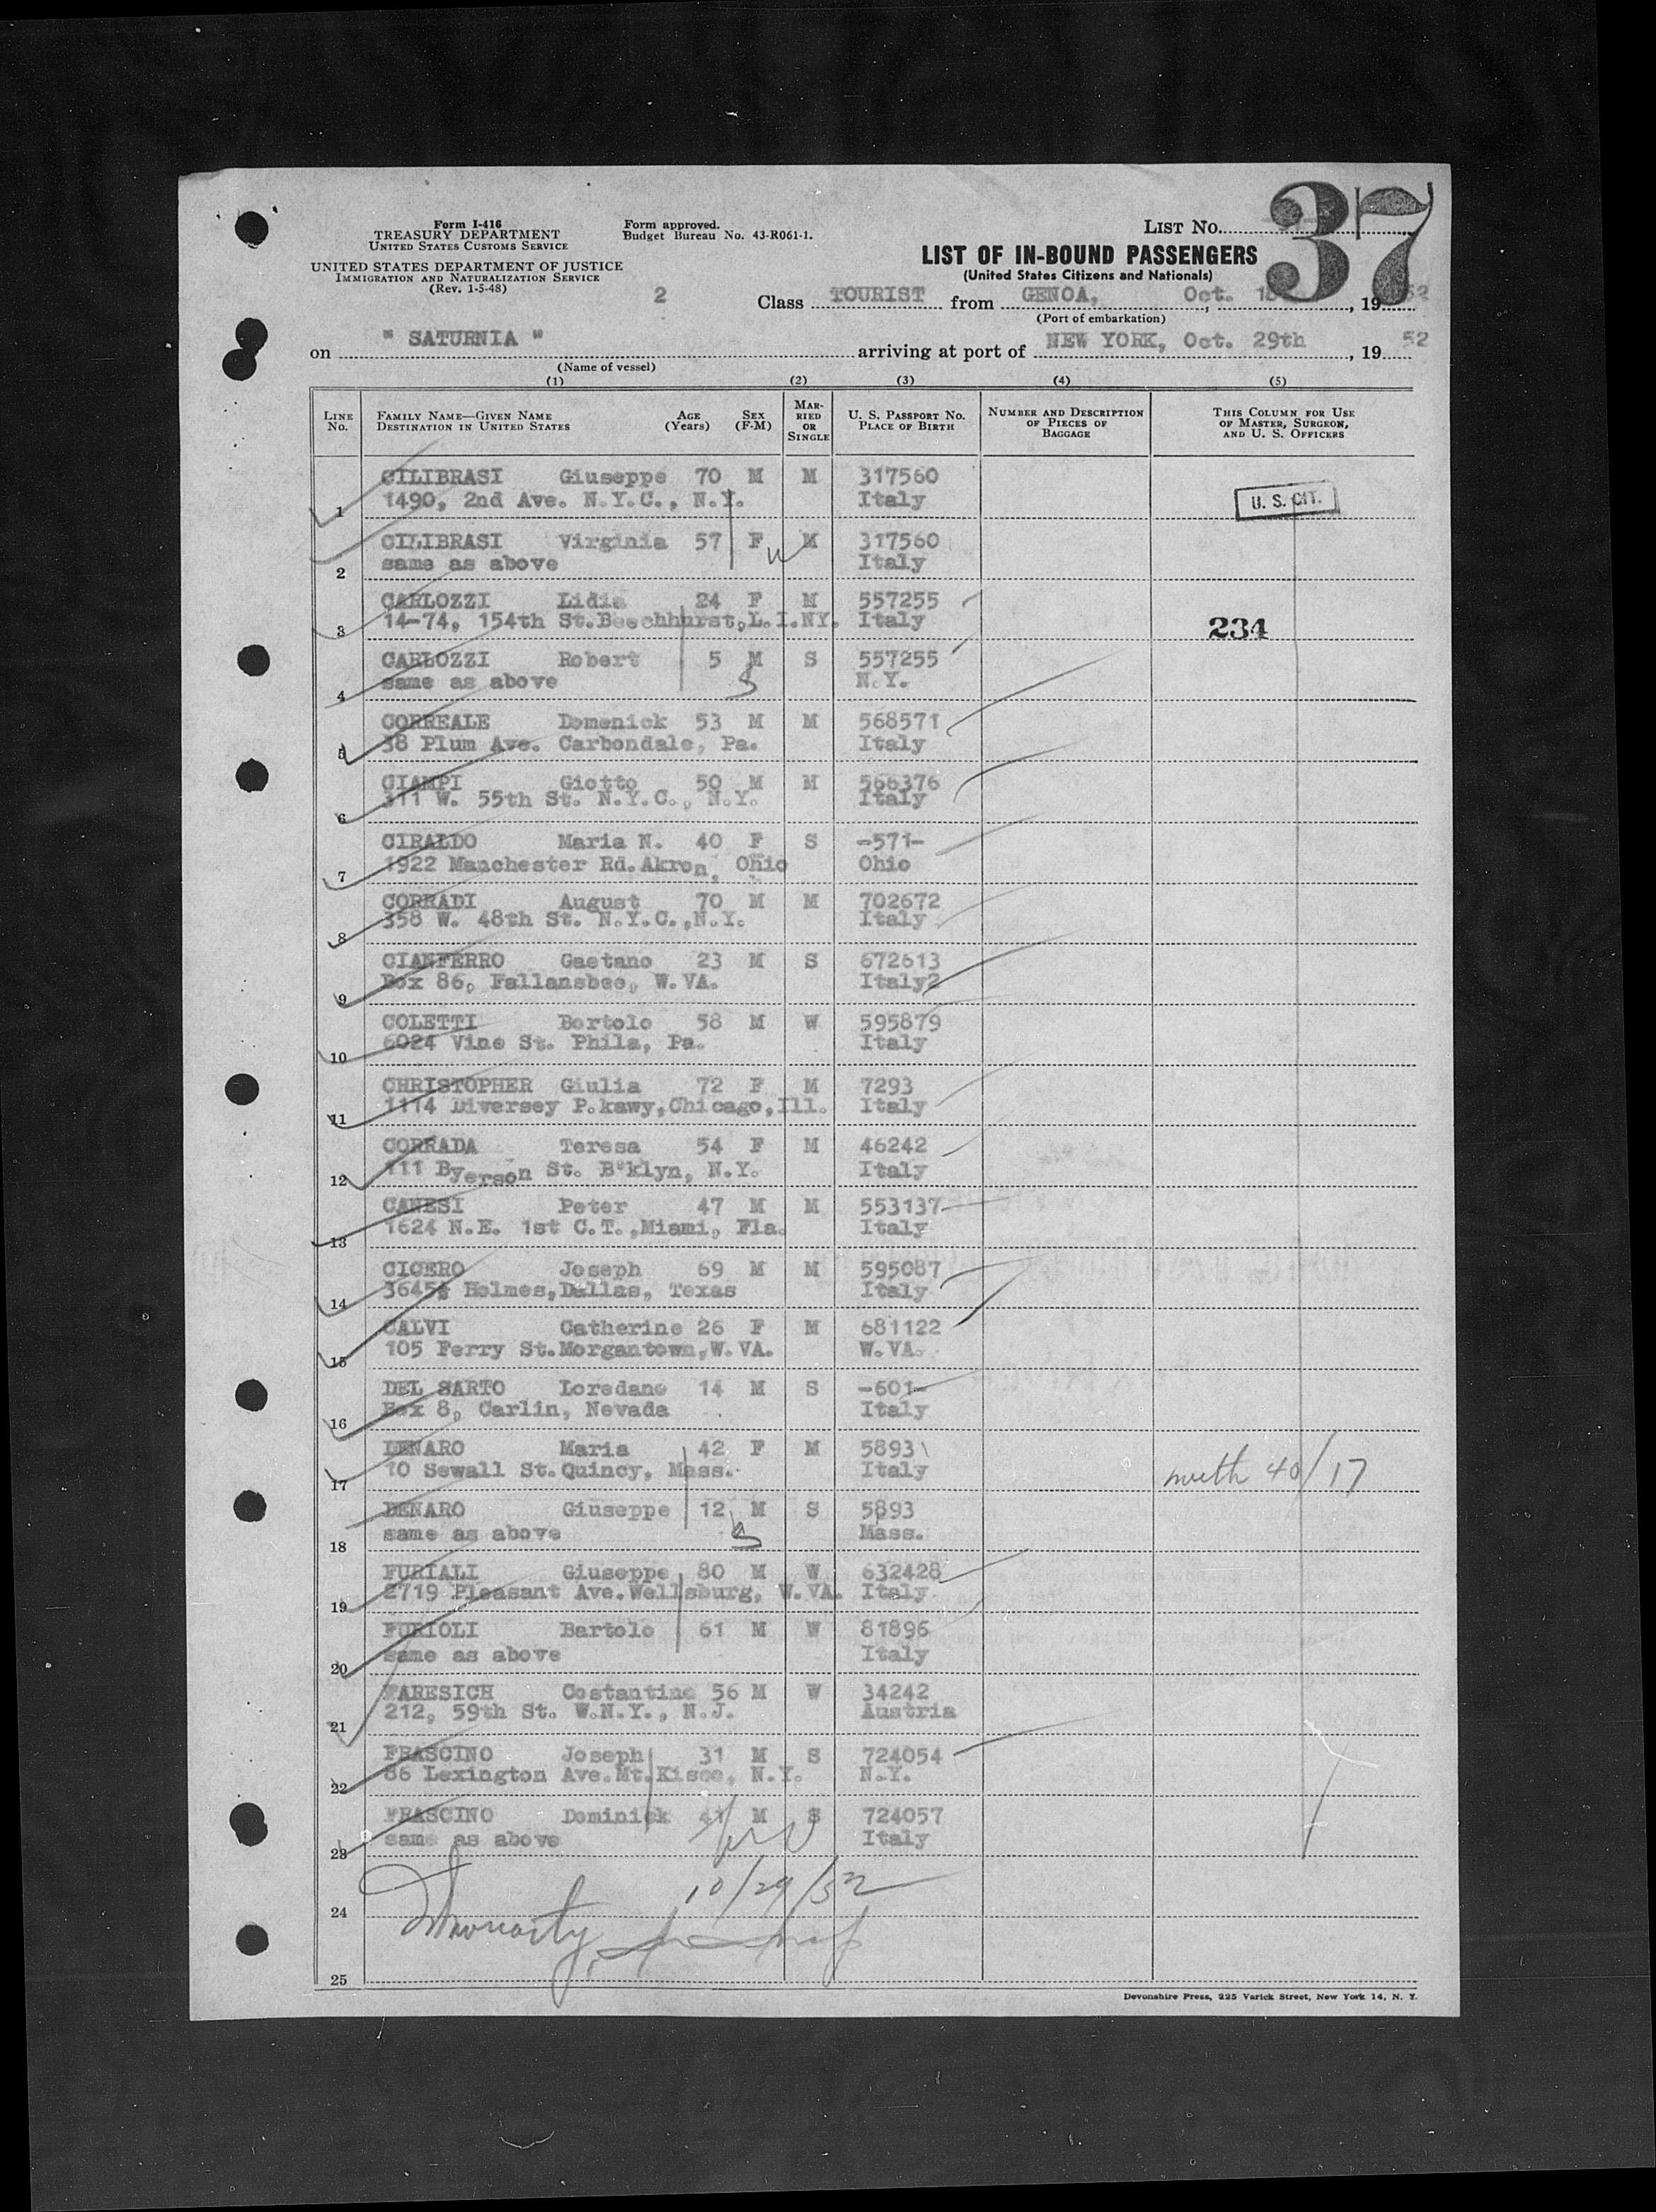 Form I-416
TREASURY DEPARTMENT
UNITED STATES CUSTOMS SERVICE
UNITED STATES DEPARTMENT OF JUSTICE
IMMIGRATION AND NATURALIZATION SERVICE
(Rev. 1-5-48)
Form approved.
Budget Bureau No. 43-R061-1.
LIST No. 37
LIST OF IN-BOUND PASSENGERS
(United States Citizens and Nationals)
2 Class TOURIST from GENOA, Oct. , 19
(Port of embarkation)
on " SATURNIA " arriving at port of NEW YORK, Oct. 29th , 19 52
(Name of vessel)
(1) (2) (3) (4) (5)
LINE No. FAMILY NAME—GIVEN NAME DESTINATION IN UNITED STATES AGE (Years) SEX (F-M) MARRIED OR SINGLE U. S. PASSPORT NO. PLACE OF BIRTH NUMBER AND DESCRIPTION OF PIECES OF BAGGAGE THIS COLUMN FOR USE OF MASTER, SURGEON, AND U. S. OFFICERS
CILIBRASI Giuseppe 70 M M 317560
1 1490, 2nd Ave. N.Y.C., N.Y. Italy U. S. CIT.
CILIBRASI Virginia 57 F M 317560
2 same as above Italy
CARLOZZI Lidia 24 F M 557255
3 14-74, 154th St.Beechhurst,L.I.NY. Italy 234
CARLOZZI Robert 5 M S 557255
4 same as above N.Y.
CORREALE Domenick 53 M M 568571
5 38 Plum Ave. Carbondale, Pa. Italy
CIAMPI Giotto 50 M M 566376
6 311 W. 55th St. N.Y.C., N.Y. Italy
CIRALDO Maria N. 40 F S -571-
7 1922 Manchester Rd.Akron, Ohio Ohio
CORRADI August 70 M M 702672
8 358 W. 48th St. N.Y.C.,N.Y. Italy
CIANFERRO Gaetano 23 M S 672613
9 Box 86, Fallansbee, W.VA. Italy2
COLETTI Bortolo 58 M W 595879
10 6024 Vine St. Phila, Pa. Italy
CHRISTOPHER Giulia 72 F M 7293
11 1114 Diversey P.kawy,Chicago,Ill. Italy
CORRADA Teresa 54 F M 46242
12 111 Byerson St. B'klyn, N.Y. Italy
CANESI Peter 47 M M 553137
13 1624 N.E. 1st C.T.,Miami, Fla. Italy
CICERO Joseph 69 M M 595087
14 3645½ Holmes,Dallas, Texas Italy
CALVI Catherine 26 F M 681122
15 105 Ferry St.Morgantown,W.VA. W.VA.
DEL SARTO Loredano 14 M S -601-
16 Box 8, Carlin, Nevada Italy
DENARO Maria 42 F M 5893
17 10 Sewall St.Quincy, Mass. Italy with 40/17
DENARO Giuseppe 12 M S 5893
18 same as above Mass.
FURIALI Giuseppe 80 M W 632428
19 2719 Pleasant Ave.Wellsburg, W.VA. Italy
FURIOLI Bartolo 61 M W 81896
20 same as above Italy
FARESICH Costantine 56 M W 34242
21 212, 59th St. W.N.Y., N.J. Austria
FRASCINO Joseph 31 M S 724054
22 86 Lexington Ave.Mt.Kisco, N.Y. N.Y.
FRASCINO Dominick M S 724057
23 same as above Italy
10/29/52
24 Moriarty,
25
Devonshire Press, 225 Varick Street, New York 14, N. Y.